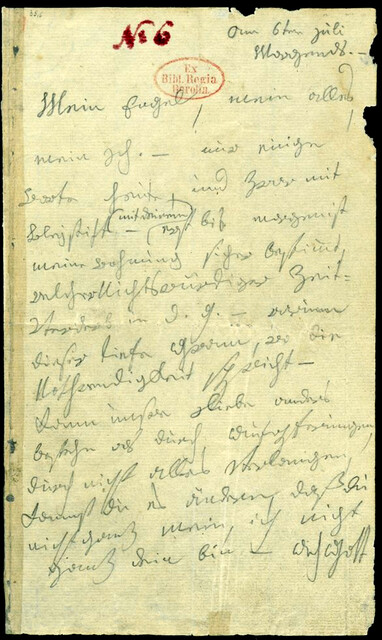 No 6
am 6ten Juli
Morgends. —
Ex
Bibl. Regia
Berolin.
Mein Engel, mein alles,
mein Ich. — nur einige
Worte heute, und zwar mit
Bleystift — (mit deinem) erst bis morgen ist
meine Wohnung sicher bestimt,
welcher Nichtswürdiger Zeit-
Verderb in d. g. — warum
dieser tiefe Gram, wo die
Nothwendigkeit spricht —
Kann unsre Liebe anders
bestehn als durch Aufopferungen,
durch nicht alles verlangen,
kannst du es ändern, daß du
nicht ganz mein, ich nicht
ganz dein bin — Ach Gott